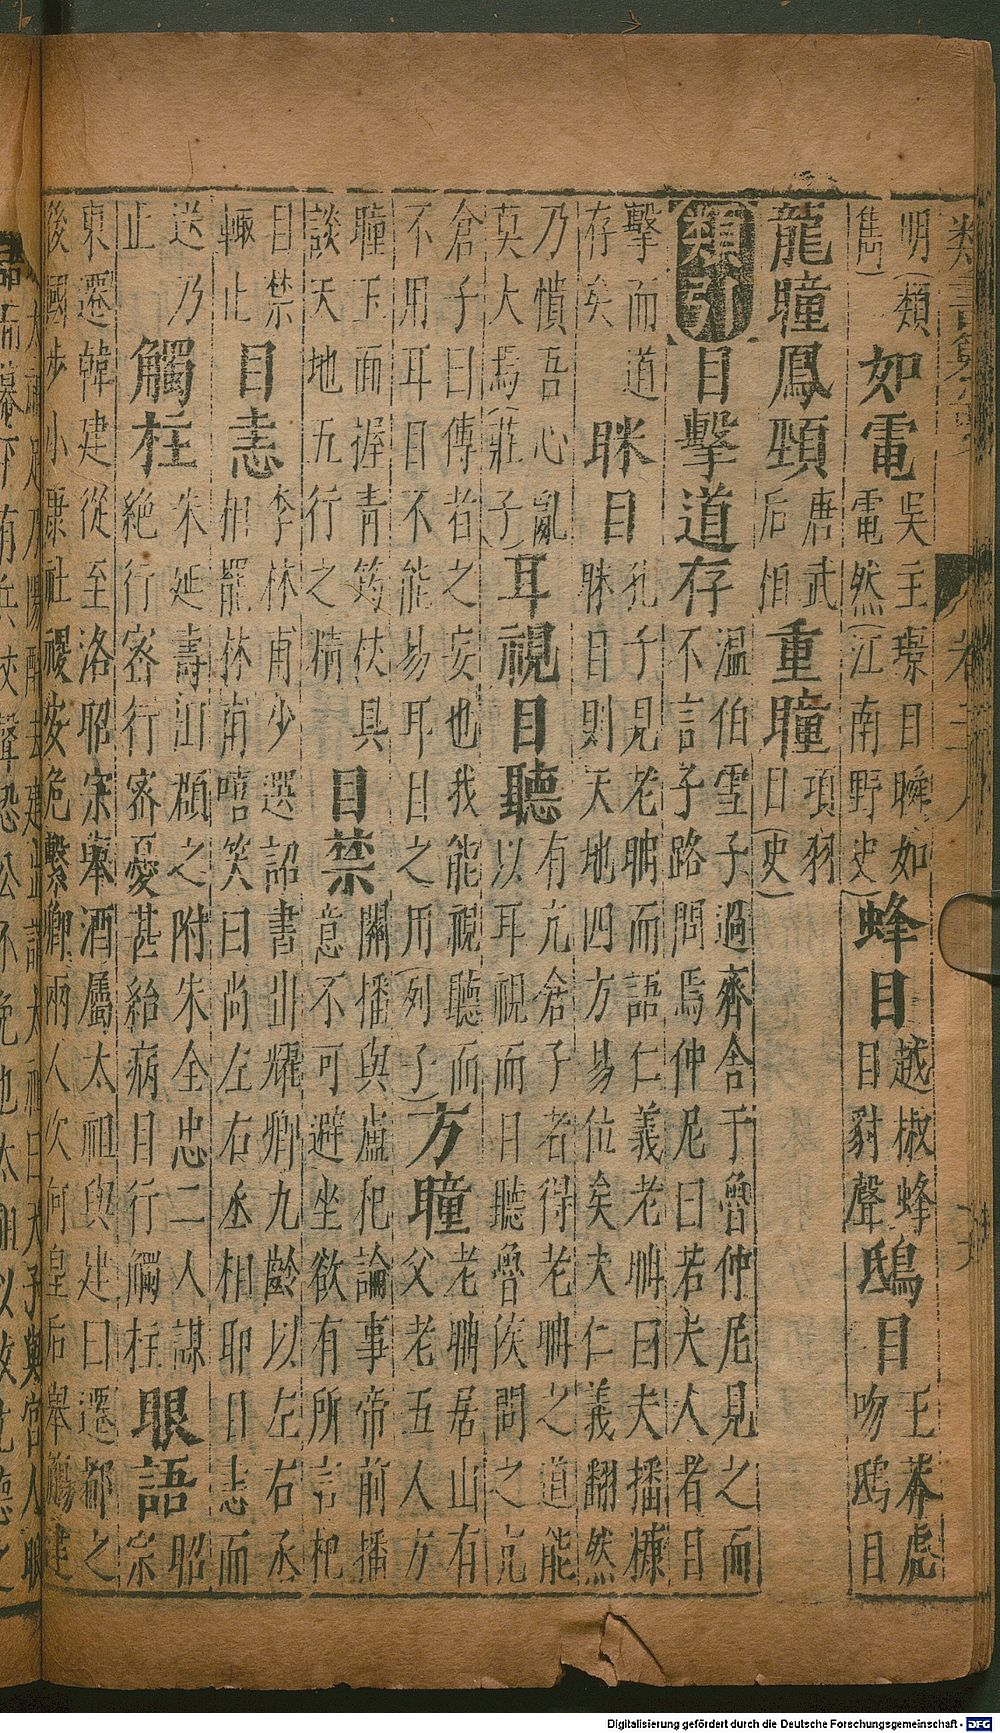 類書纂要
明(類
雋)
如電
吳主璟目瞬如
電然(江南野史)
蜂目
越椒蜂
目豺聲
鴟目
王莽虎
吻鴟目
龍瞳鳳頸
唐武
后相
重瞳
項羽
目(史)
類引
目擊道存
溫伯雪子過齊舍于魯仲尼見之而
不言子路問焉仲尼曰若夫人者目
擊而道
存矣
眯目
孔子見老聃而語仁義老聃曰夫播糠
眯目則天地四方易位矣夫仁義翻然
乃憒吾心亂
莫大焉(莊子)
耳視目聽
有亢倉子者得老聃之道能
以耳視而目聽魯侯問之亢
倉子曰傳者之妄也我能視聽而
不用耳目不能易耳目之用(列子)
方瞳
老聃居山有
父老五人方
瞳玉面握青筠杖具
談天地五行之精
目禁
關播與盧杞論事帝前播
意不可避坐欲有所言杞
目禁
輙止
目恚
李林甫少選詔書出耀卿九齡以左右丞
相罷林甫嘻笑曰尚左右丞相耶目恚而
送乃
止
觸柱
朱延壽之附朱全忠二人謀
絕行密行密憂甚紿病目行觸柱
眼語
昭
宗
東遷韓建從至洛昭宗舉酒屬太祖與建曰遷都之
後國步小康社稷安危繫卿兩人次何皇后舉觴建
Digitalisierung gefördert durch die Deutsche Forschungsgemeinschaft - DFG